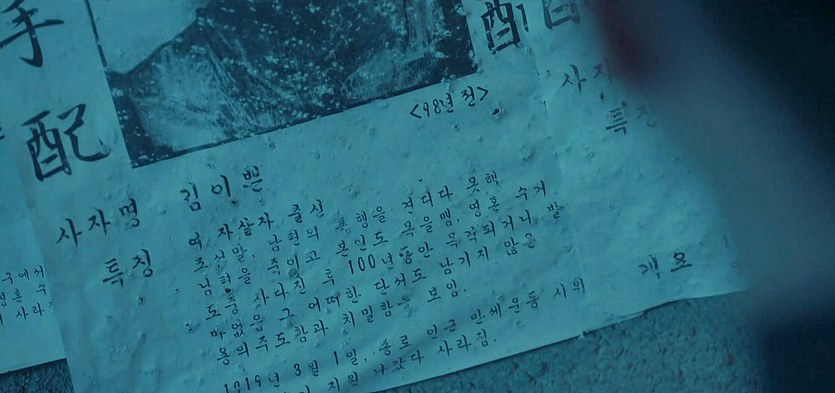 手
配
配
<98년 전>
사자명 김이쁜
특징 여, 자살자, 출신
조선말, 남편의 폭행을 견디다 못해
남편을 죽이고 본인도 목을맴. 영혼 수거
도중 사라진 후 100년동안 목격되거나 발
그 어떠한 단서도 남기지 않은
용의주도함과 치밀함을 보임.
1919년 3월 1일, 종로 인근 만세운동 시위
지원 나갔다 사라짐.
사자
특징